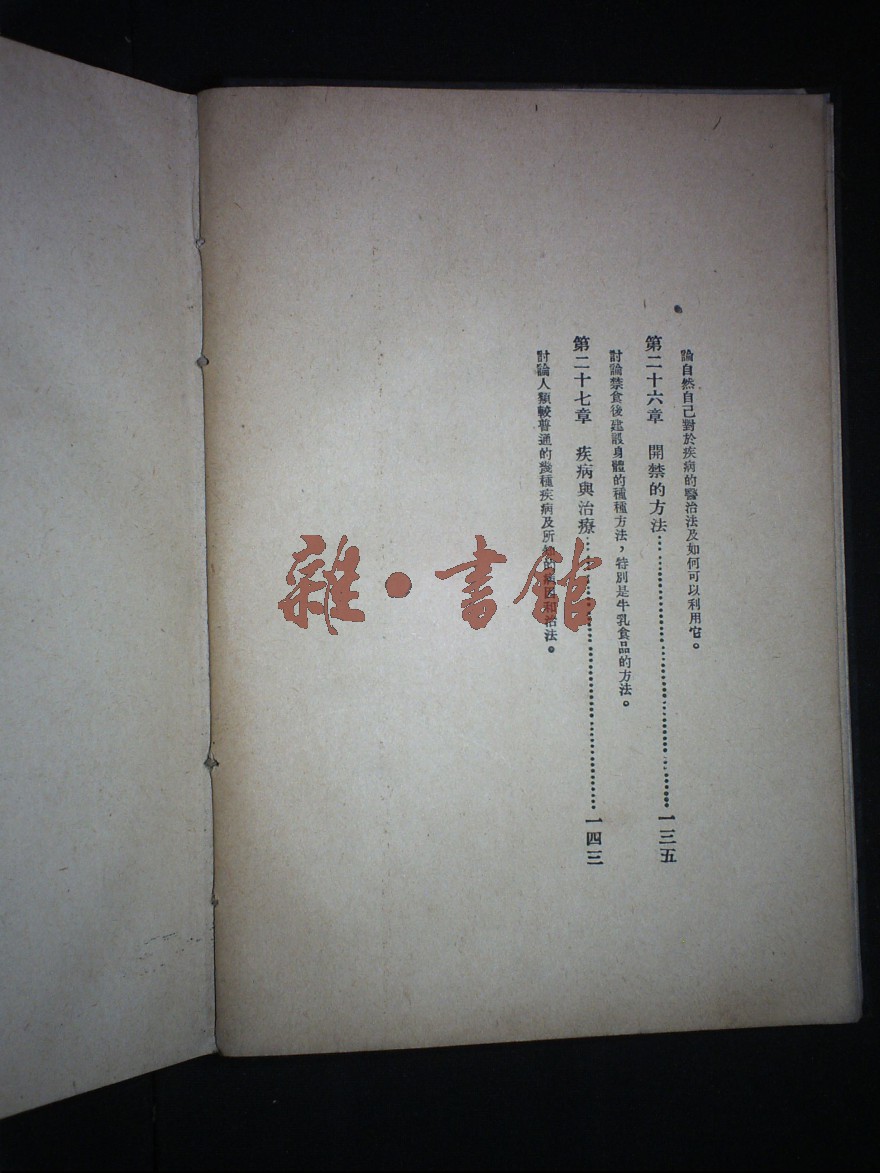 論自然自己對於疾病的醫治法及如何可以利用它。
第二十六章　開禁的方法……………………………一三五
討論禁食後建設身體的種種方法，特別是牛乳食品的方法。
第二十七章　疾病與治療……………………………一四三
討論人類較普通的幾種疾病及所知的病因和治法。
雜·書館